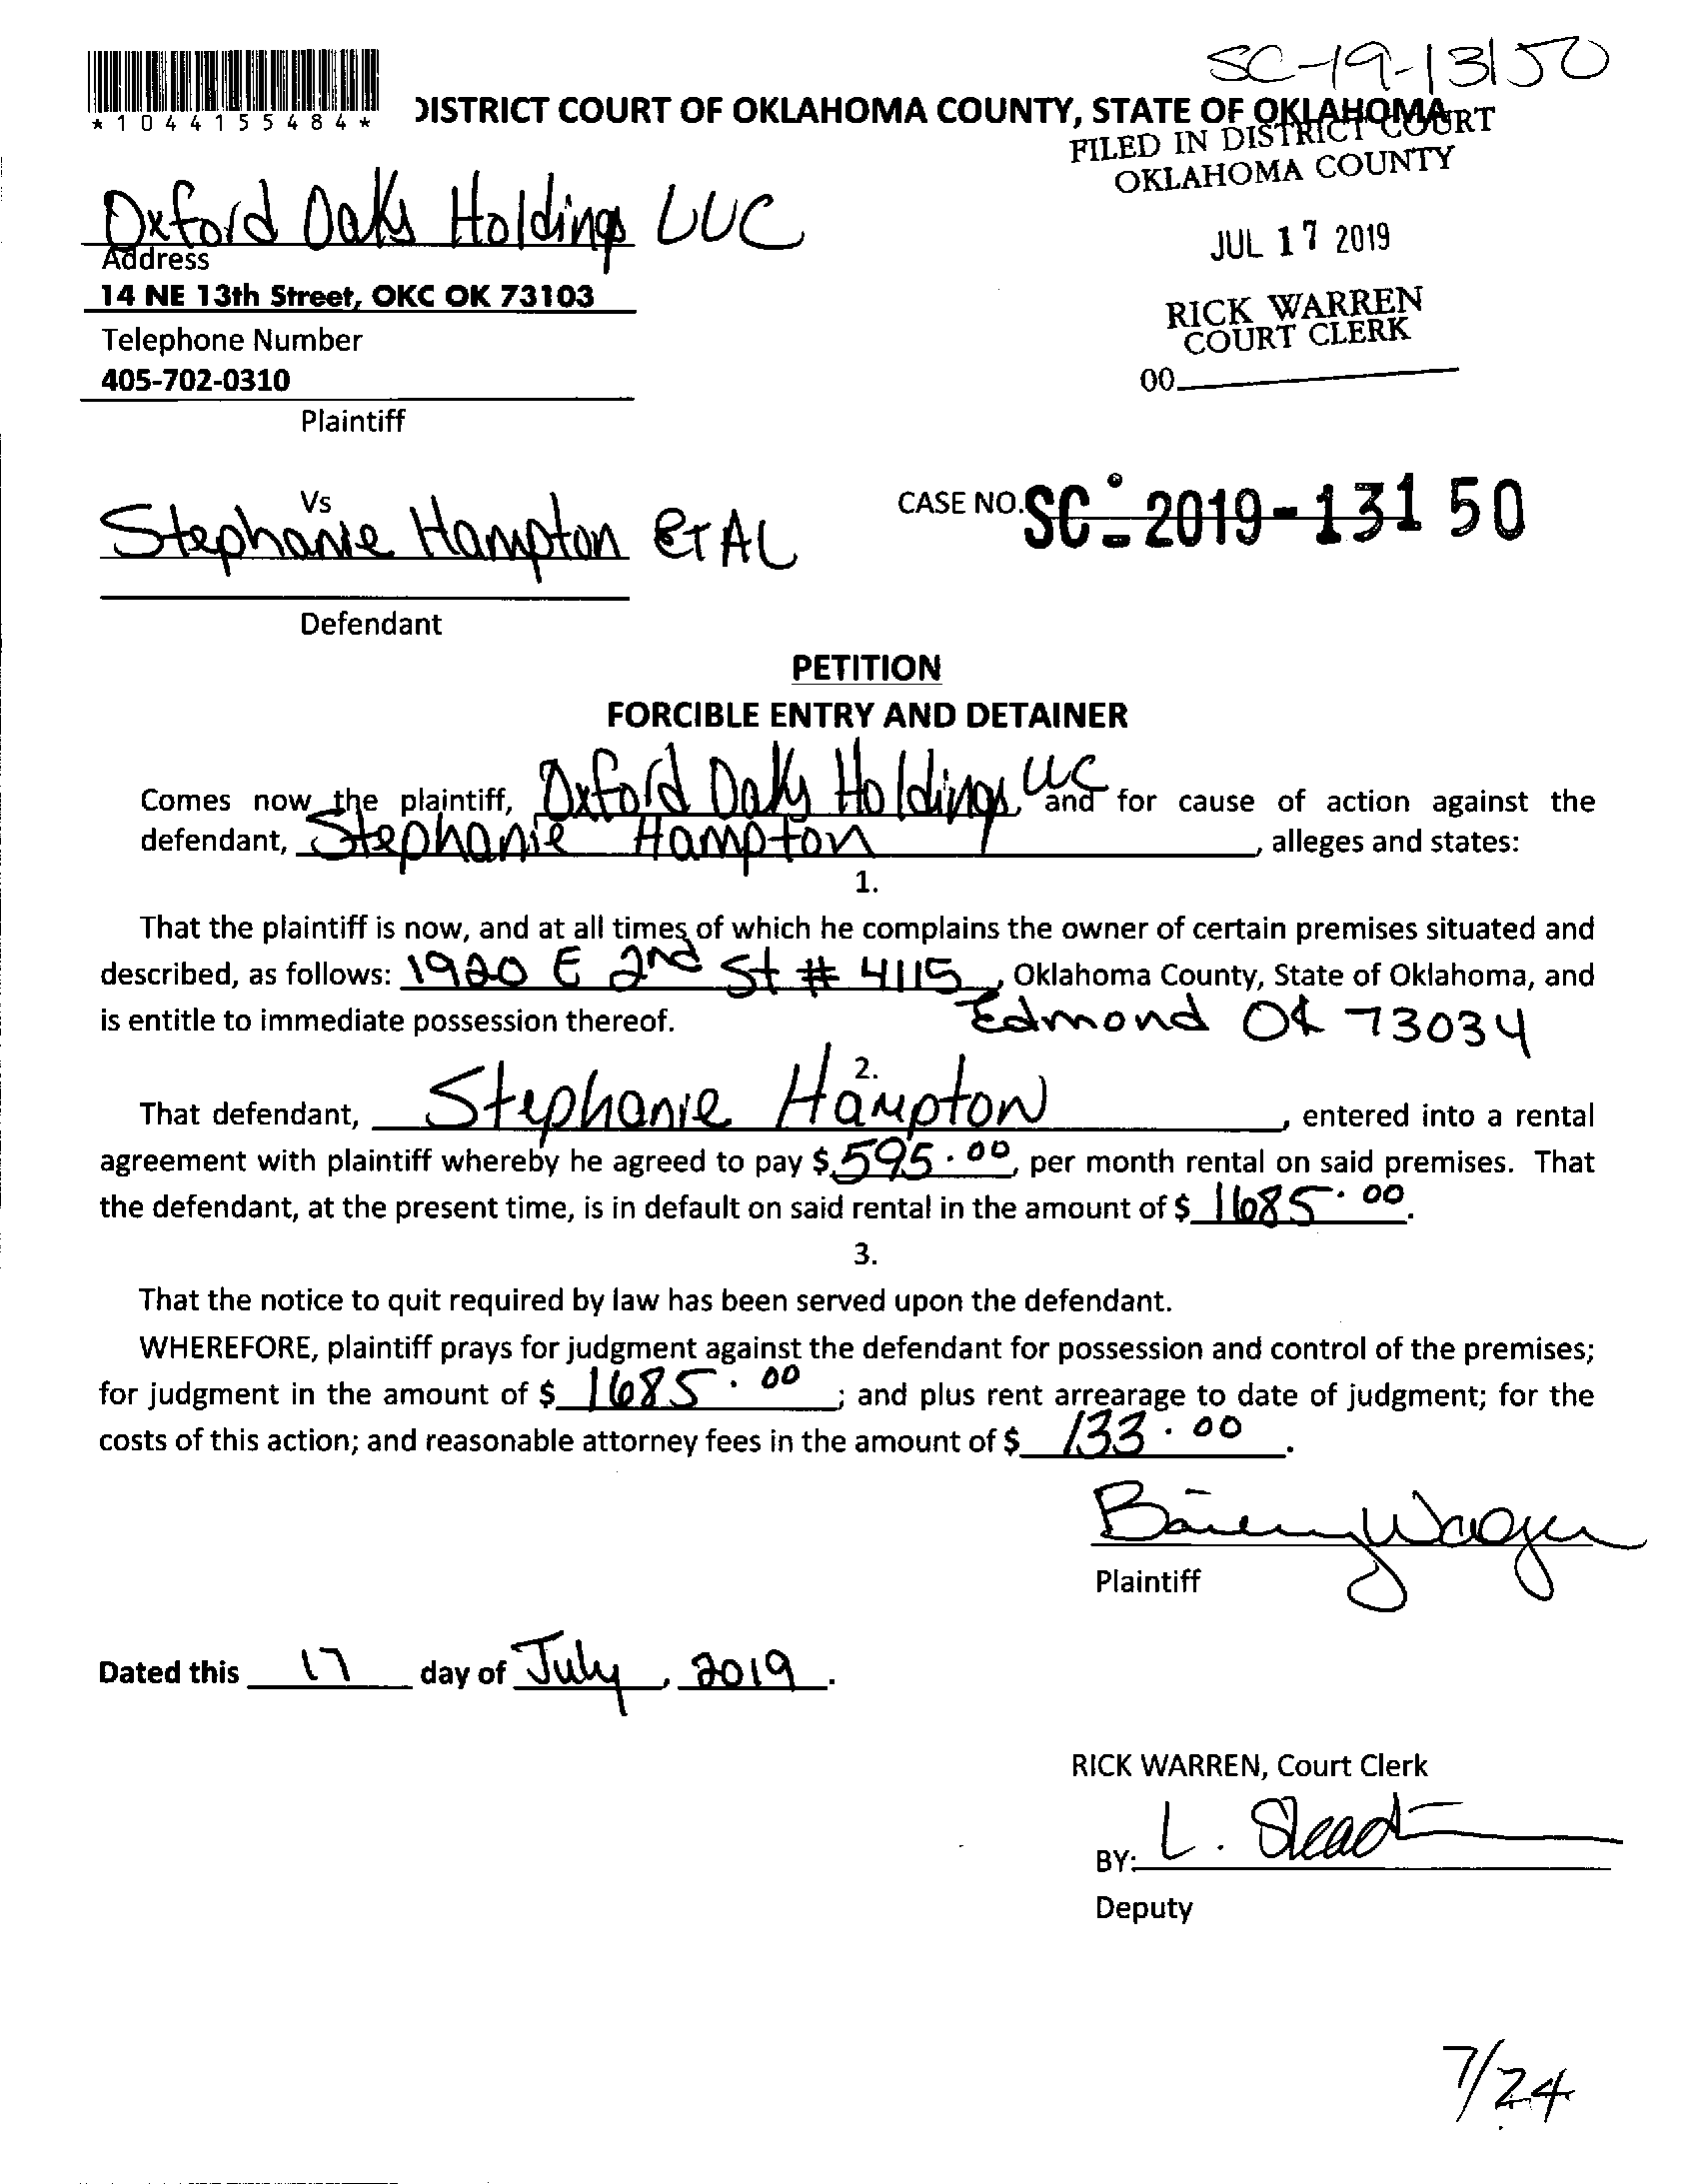 SC-19-13150
*1044155484*
DISTRICT COURT OF OKLAHOMA COUNTY, STATE OF OKLAHOMA
FILED IN DISTRICT COURT
OKLAHOMA COUNTY
JUL 17 2019
RICK WARREN
COURT CLERK
00
Oxford Oaks Holdings LLC
Address
14 NE 13th Street, OKC OK 73103
Telephone Number
405-702-0310
Plaintiff
Vs
Stephanie Hampton ET AL
Defendant
CASE NO. SC-2019-13150
PETITION
FORCIBLE ENTRY AND DETAINER
Comes now the plaintiff, Oxford Oaks Holdings, LLC and for cause of action against the
defendant, Stephanie Hampton, alleges and states:
1.
That the plaintiff is now, and at all times of which he complains the owner of certain premises situated and
described, as follows: 1920 E 2nd St # 4115, Oklahoma County, State of Oklahoma, and
is entitle to immediate possession thereof. Edmond OK 73034
2.
That defendant, Stephanie Hampton, entered into a rental
agreement with plaintiff whereby he agreed to pay $ 595.00, per month rental on said premises. That
the defendant, at the present time, is in default on said rental in the amount of $ 1685.00.
3.
That the notice to quit required by law has been served upon the defendant.
WHEREFORE, plaintiff prays for judgment against the defendant for possession and control of the premises;
for judgment in the amount of $ 1685.00; and plus rent arrearage to date of judgment; for the
costs of this action; and reasonable attorney fees in the amount of $ 133.00.
Plaintiff
Dated this 17 day of July, 2019.
RICK WARREN, Court Clerk
BY: L.
Deputy
7/24